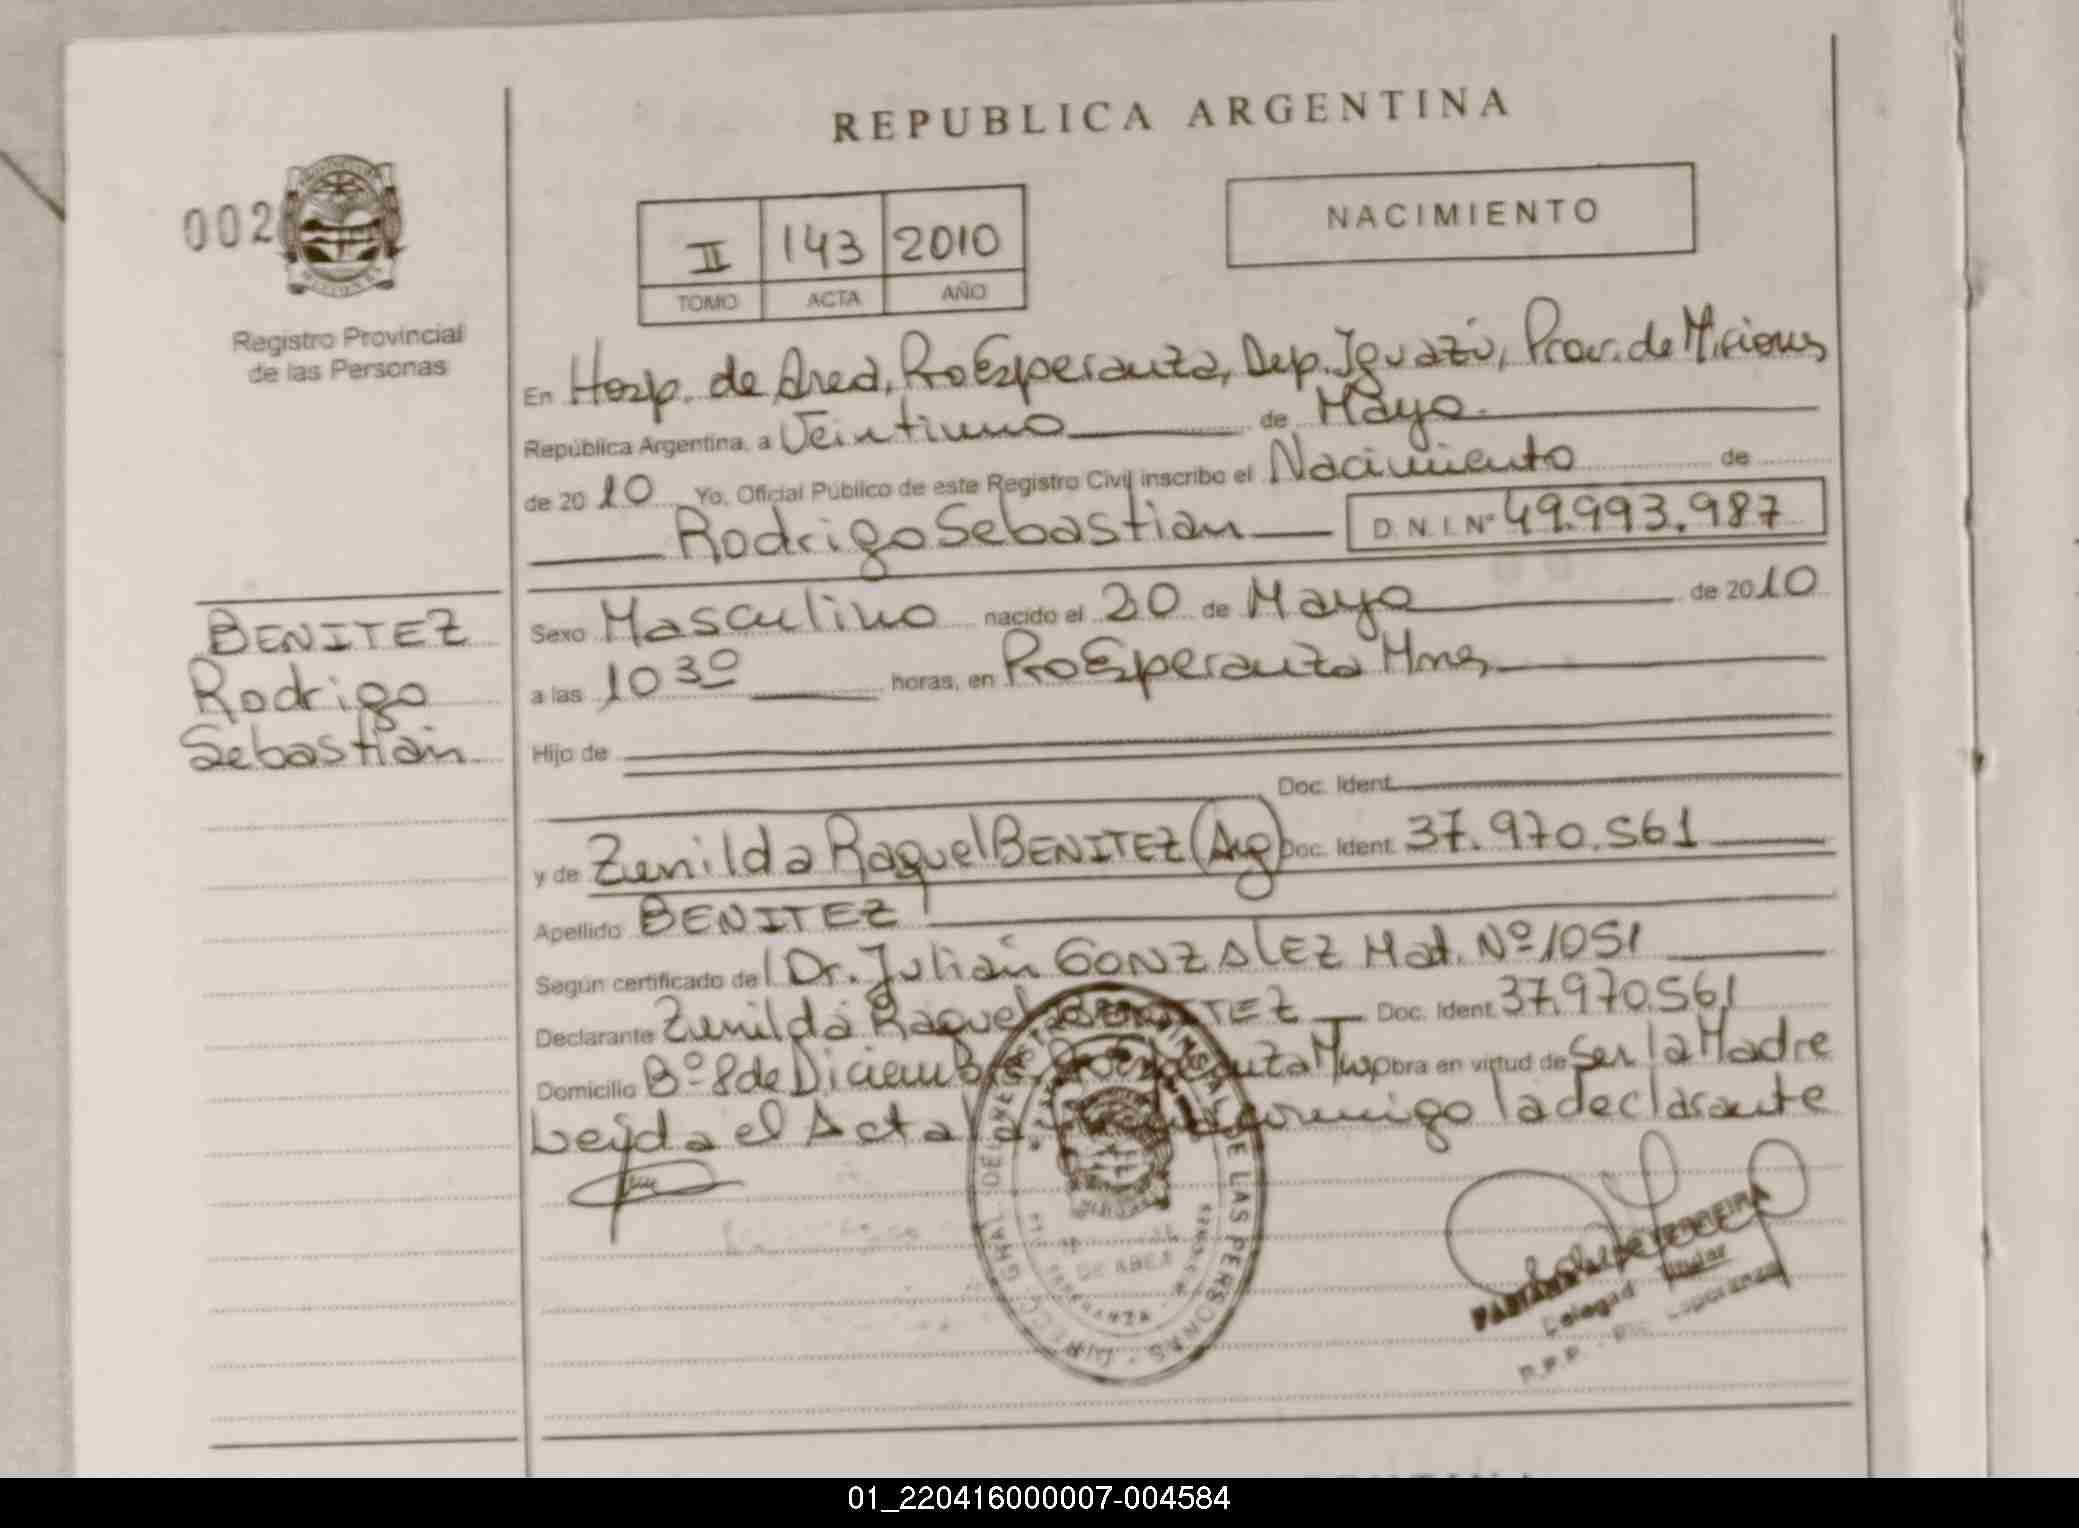 REPUBLICA ARGENTINA
002
II 143 2010
TOMO ACTA AÑO
NACIMIENTO
Registro Provincial
de las Personas
En Hosp. de Area, Pto Esperanza, Dep. Iguazú, Prov. de Misiones
República Argentina, a Veintiuno de Mayo
de 2010 Yo, Oficial Público de este Registro Civil inscribo el Nacimiento de
Rodrigo Sebastian D.N.I. Nº 49.993.987
BENITEZ
Rodrigo
Sebastián
Sexo Masculino nacido el 20 de Mayo de 2010
a las 10 30 horas, en Pto Esperanza Mnes
Hijo de
Doc. Ident.
y de Zunilda Raquel BENITEZ (Arg) Doc. Ident. 37.970.561
Apellido BENITEZ
Según certificado del Dr. Julián GONZALEZ Mat. Nº 1051
Declarante Zunilda Raquel BENITEZ Doc. Ident. 37.970.561
Domicilio Bº 8 de Diciembre, Esperanza Mnes obra en virtud de Ser la Madre
Leída el Acta la conmigo la declarante
DIRECC. GRAL. DEL REGISTRO PROVINCIAL DE LAS PERSONAS
DE AREA
ESPERANZA
FERREIRA
Titular
R.P.P. - Pto. Esperanza
01_220416000007-004584